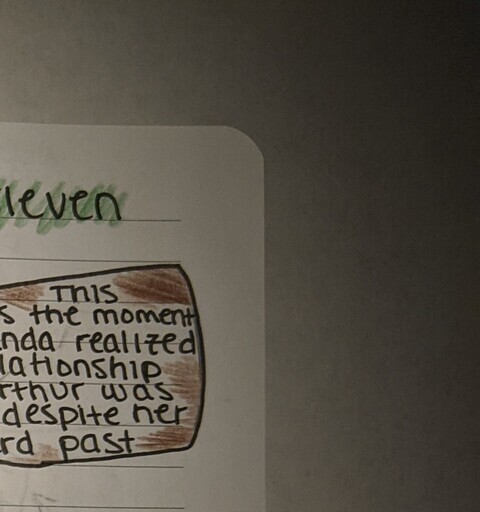 leven
This
s the moment
nda realized
lationship
rthur was
despite her
rd past